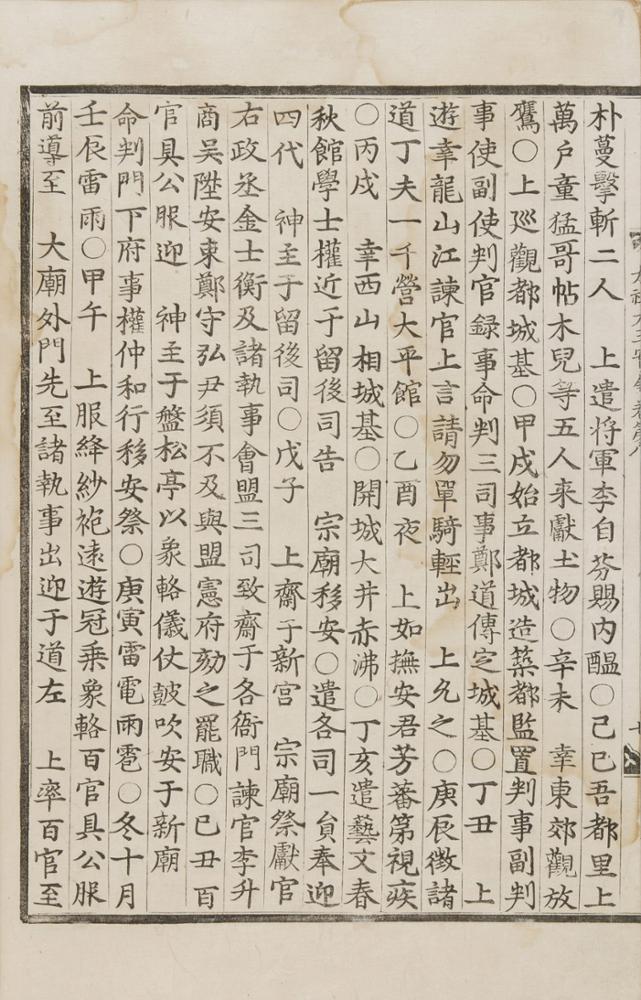 朴蔓擊斬二人　上遣將軍李自芬賜內醞○己巳吾都里上
萬戶童猛哥帖木兒等五人來獻土物○辛未　幸東郊觀放
鷹○上巡觀都城基○甲戌始立都城造築都監置判事副判
事使副使判官録事命判三司事鄭道傳定城基○丁丑　上
遊幸龍山江諫官上言請勿單騎輕出　上允之○庚辰徵諸
道丁夫一千營大平館○乙酉夜　上如撫安君芳蕃第視疾
○丙戌　幸西山相城基○開城大井赤沸○丁亥遣藝文春
秋館學士權近于留後司告　宗廟移安○遣各司一負奉迎
四代　神主于留後司○戊子　上齋于新宮　宗廟祭獻官
右政丞金士衡及諸執事會盟三司致齋于各衙門諫官李升
商吳陞安束鄭守弘尹須不及與盟憲府劾之罷職○己丑百
官具公服迎　神主于盤松亭以象輅儀仗皷吹安于新廟
命判門下府事權仲和行移安祭○庚寅雷電雨雹○冬十月
壬辰雷雨○甲午　上服絳紗袍遠遊冠乘象輅百官具公服
前導至　大廟外門先至諸執事出迎于道左　上率百官至